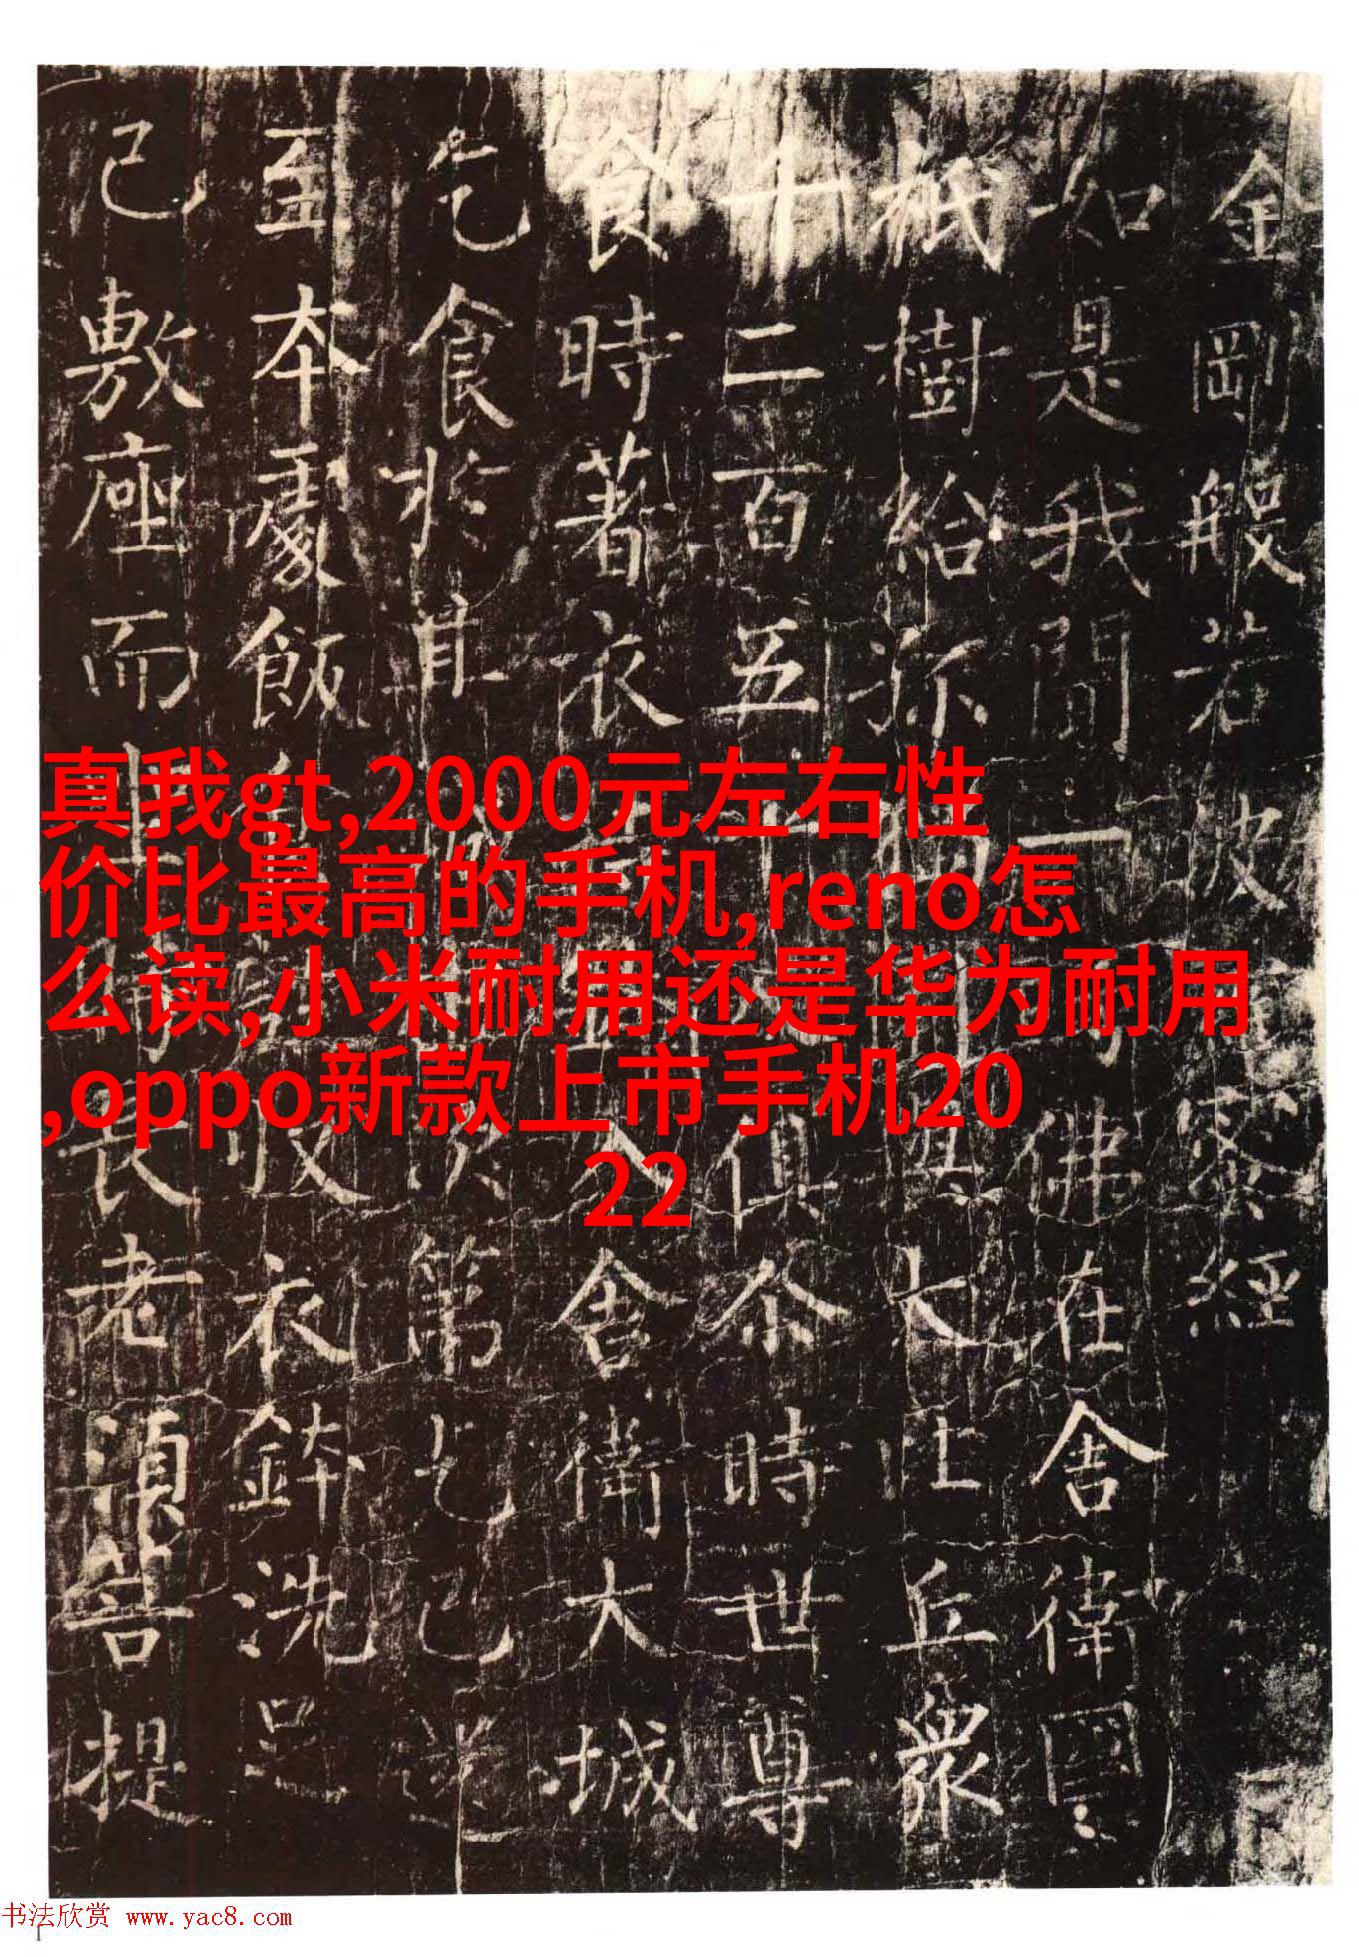 金剛般若波蜜經
如是我聞一時佛在舍衛國
祇樹給孤大比丘衆
十二百五十俱尒時世尊
食時著衣入舍衛大城
乞食於其次第乞已還
至本處飯收衣鉢洗足
已敷座而坐時長老須菩提
真我gt,2000元左右性
价比最高的手机,reno怎
么读,小米耐用还是华为耐用
,oppo新款上市手机20
22
书法欣赏 www.yac8.com